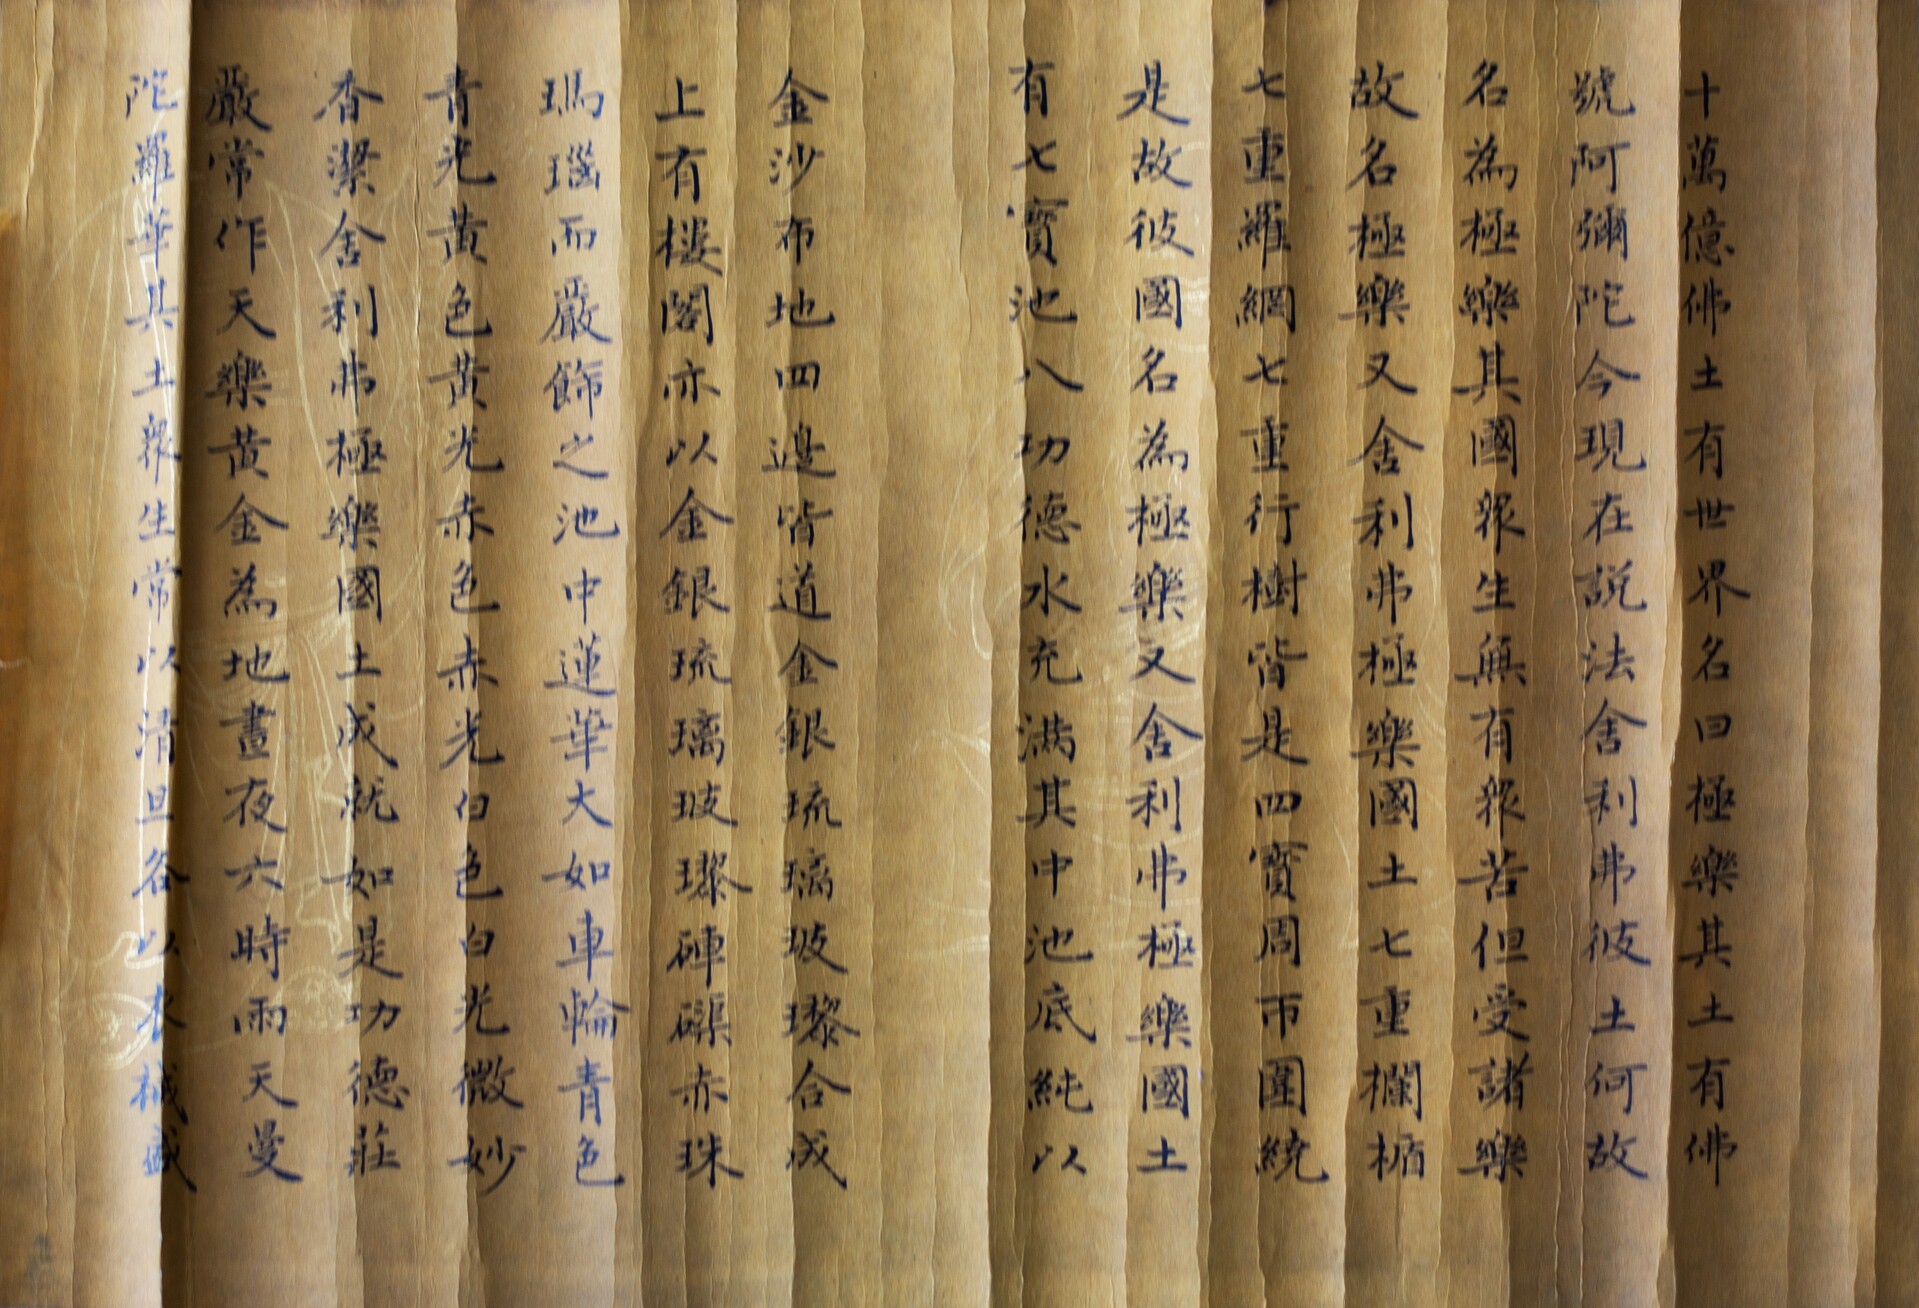 十萬億佛土有世界名曰極樂其土有佛
號阿彌陀今現在説法舍利弗彼土何故
名為極樂其國眾生無有眾苦但受諸樂
故名極樂又舍利弗極樂國土七重欄楯
七重羅網七重行樹皆是四寶周帀圍繞
是故彼國名為極樂又舍利弗極樂國土
有七寶池八功德水充滿其中池底純以
金沙布地四邊皆道金銀琉璃玻瓈合成
上有樓閣亦以金銀琉璃玻瓈硨磲赤珠
瑪瑙而嚴飾之池中蓮華大如車輪青色
青光黃色黃光赤色赤光白色白光微妙
香潔舍利弗極樂國土成就如是功德莊
嚴常作天樂黃金為地晝夜六時雨天曼
陀羅華其土眾生常以清旦各以衣裓盛